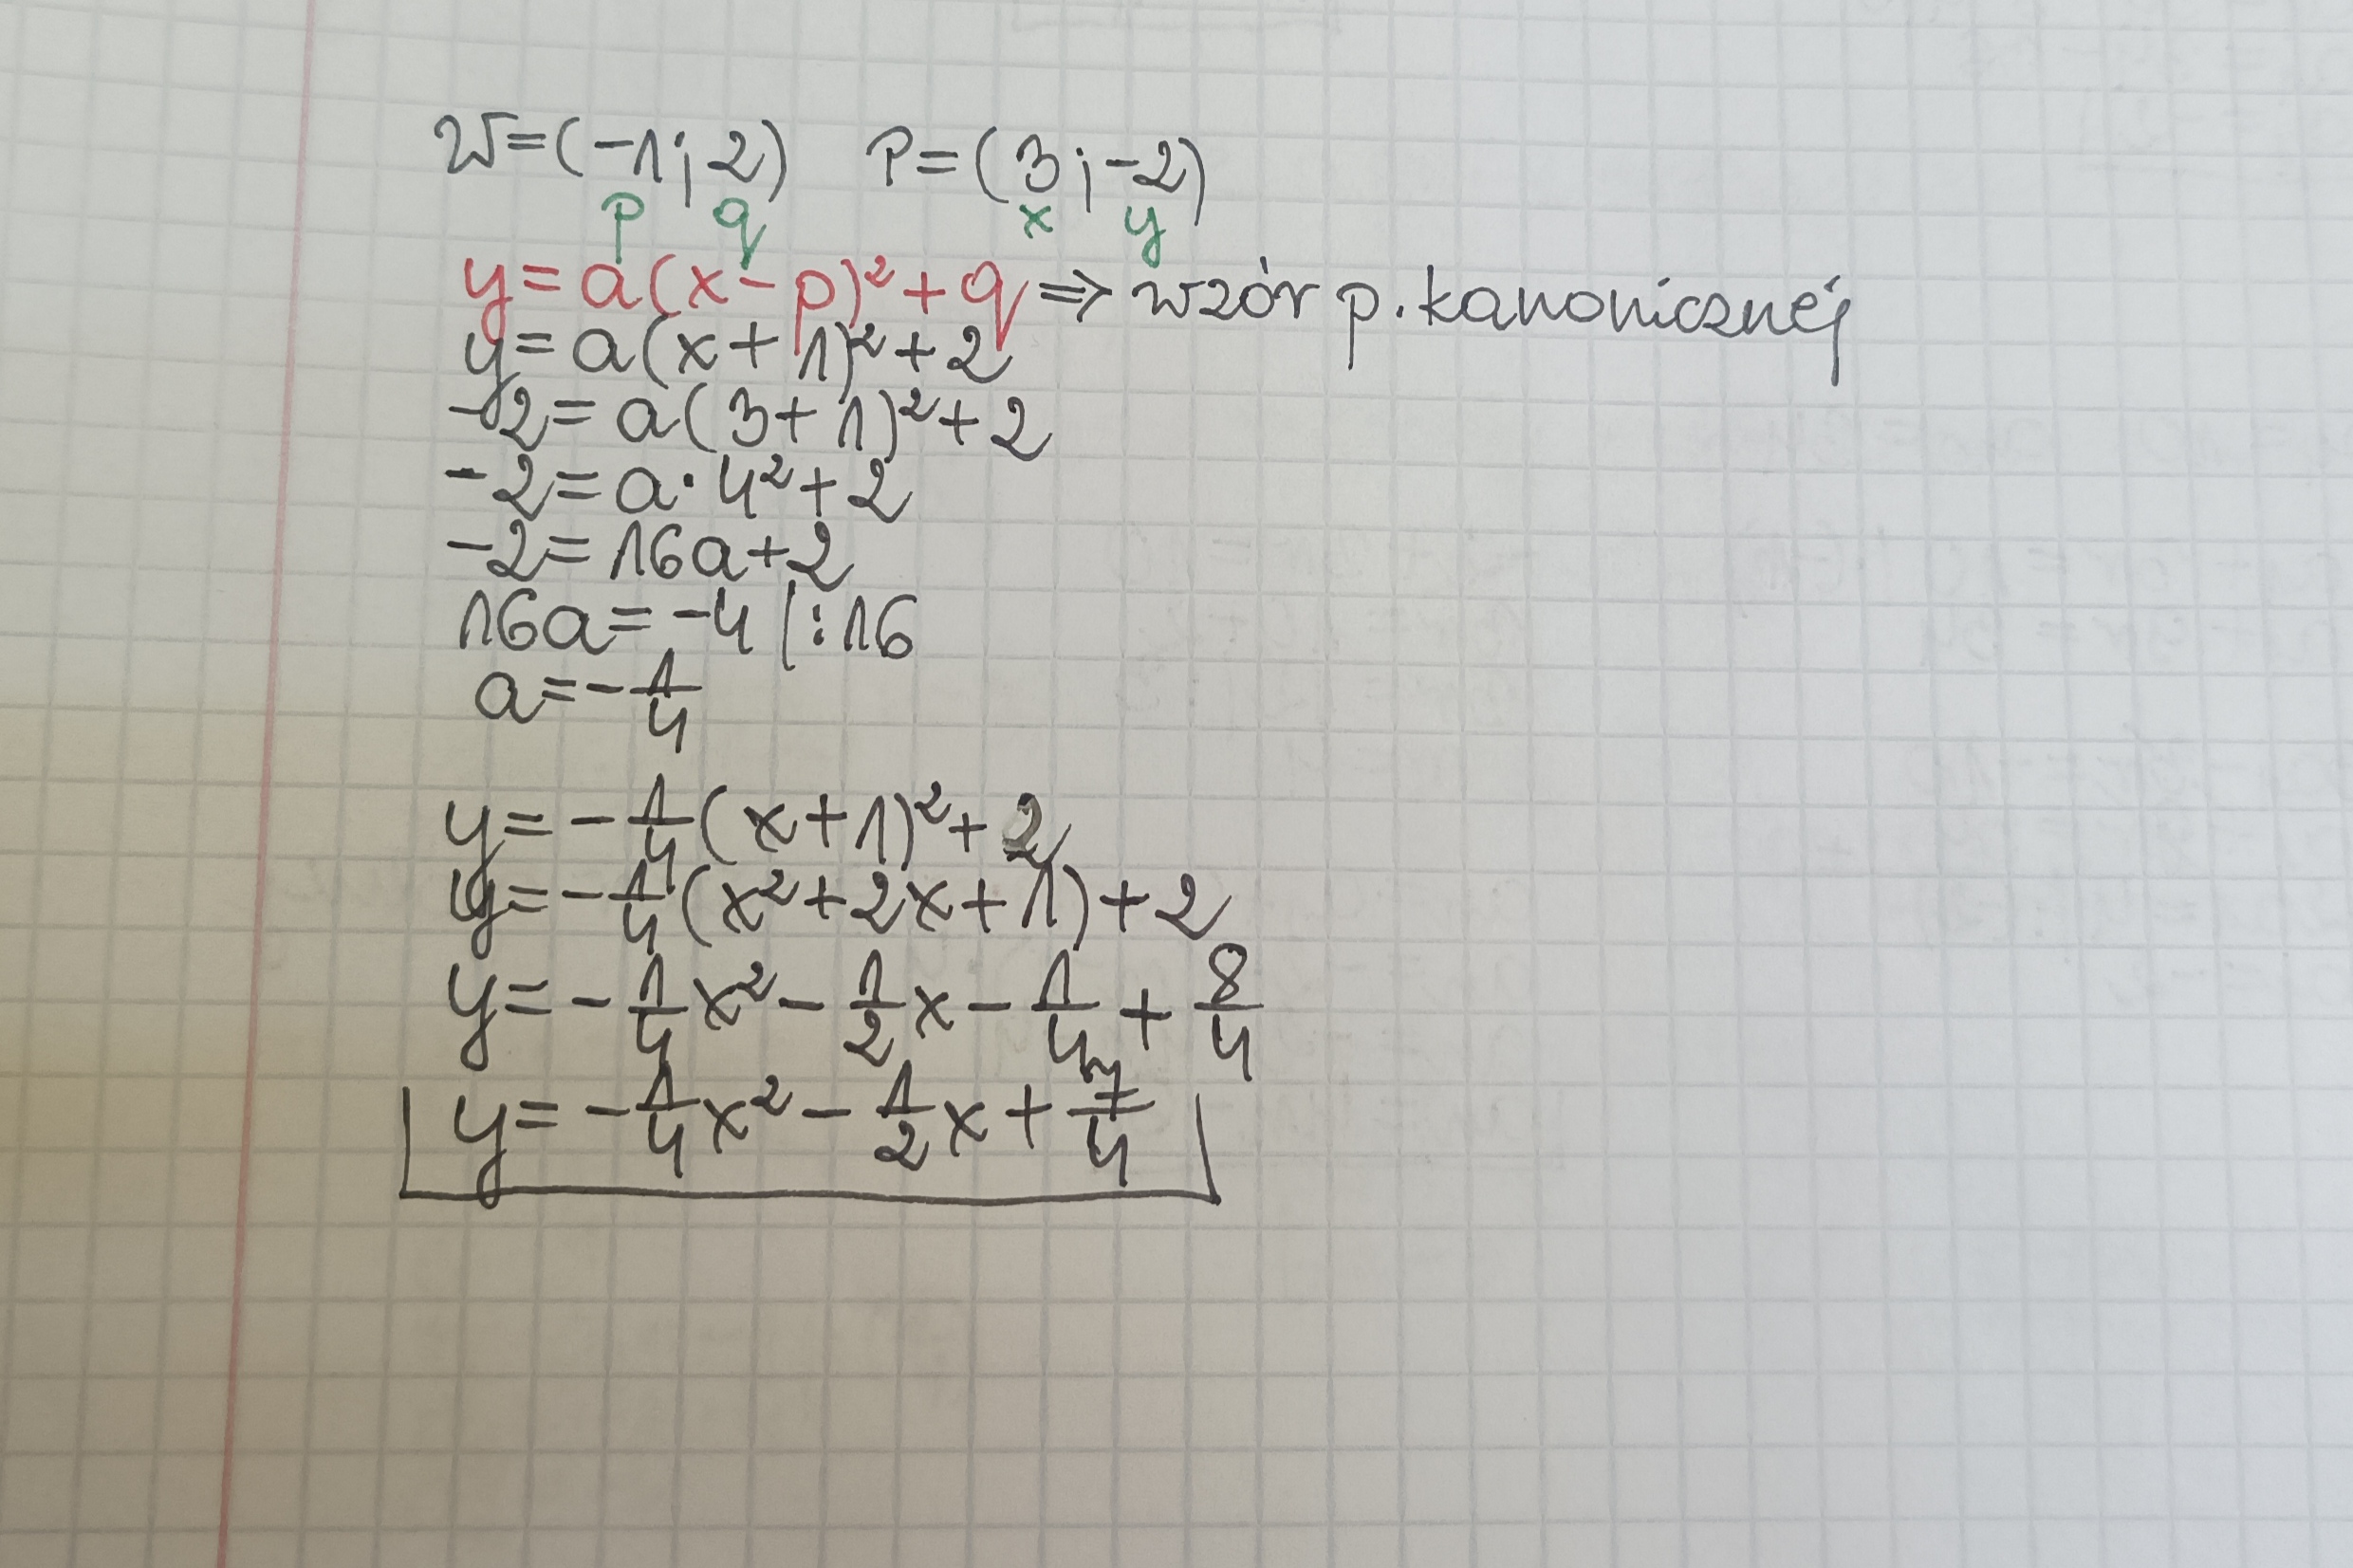 W=(-1;2) P=(3;-2)
p q x y
y=a(x-p)²+q⇒wzór p.kanonicznej
y=a(x+1)²+2
-2=a(3+1)²+2
-2=a·4²+2
-2=16a+2
16a=-4 |:16
a=-1/4
y=-1/4(x+1)²+2
y=-1/4(x²+2x+1)+2
y=-1/4x²-1/2x-1/4+8/4
y=-1/4x²-1/2x+7/4